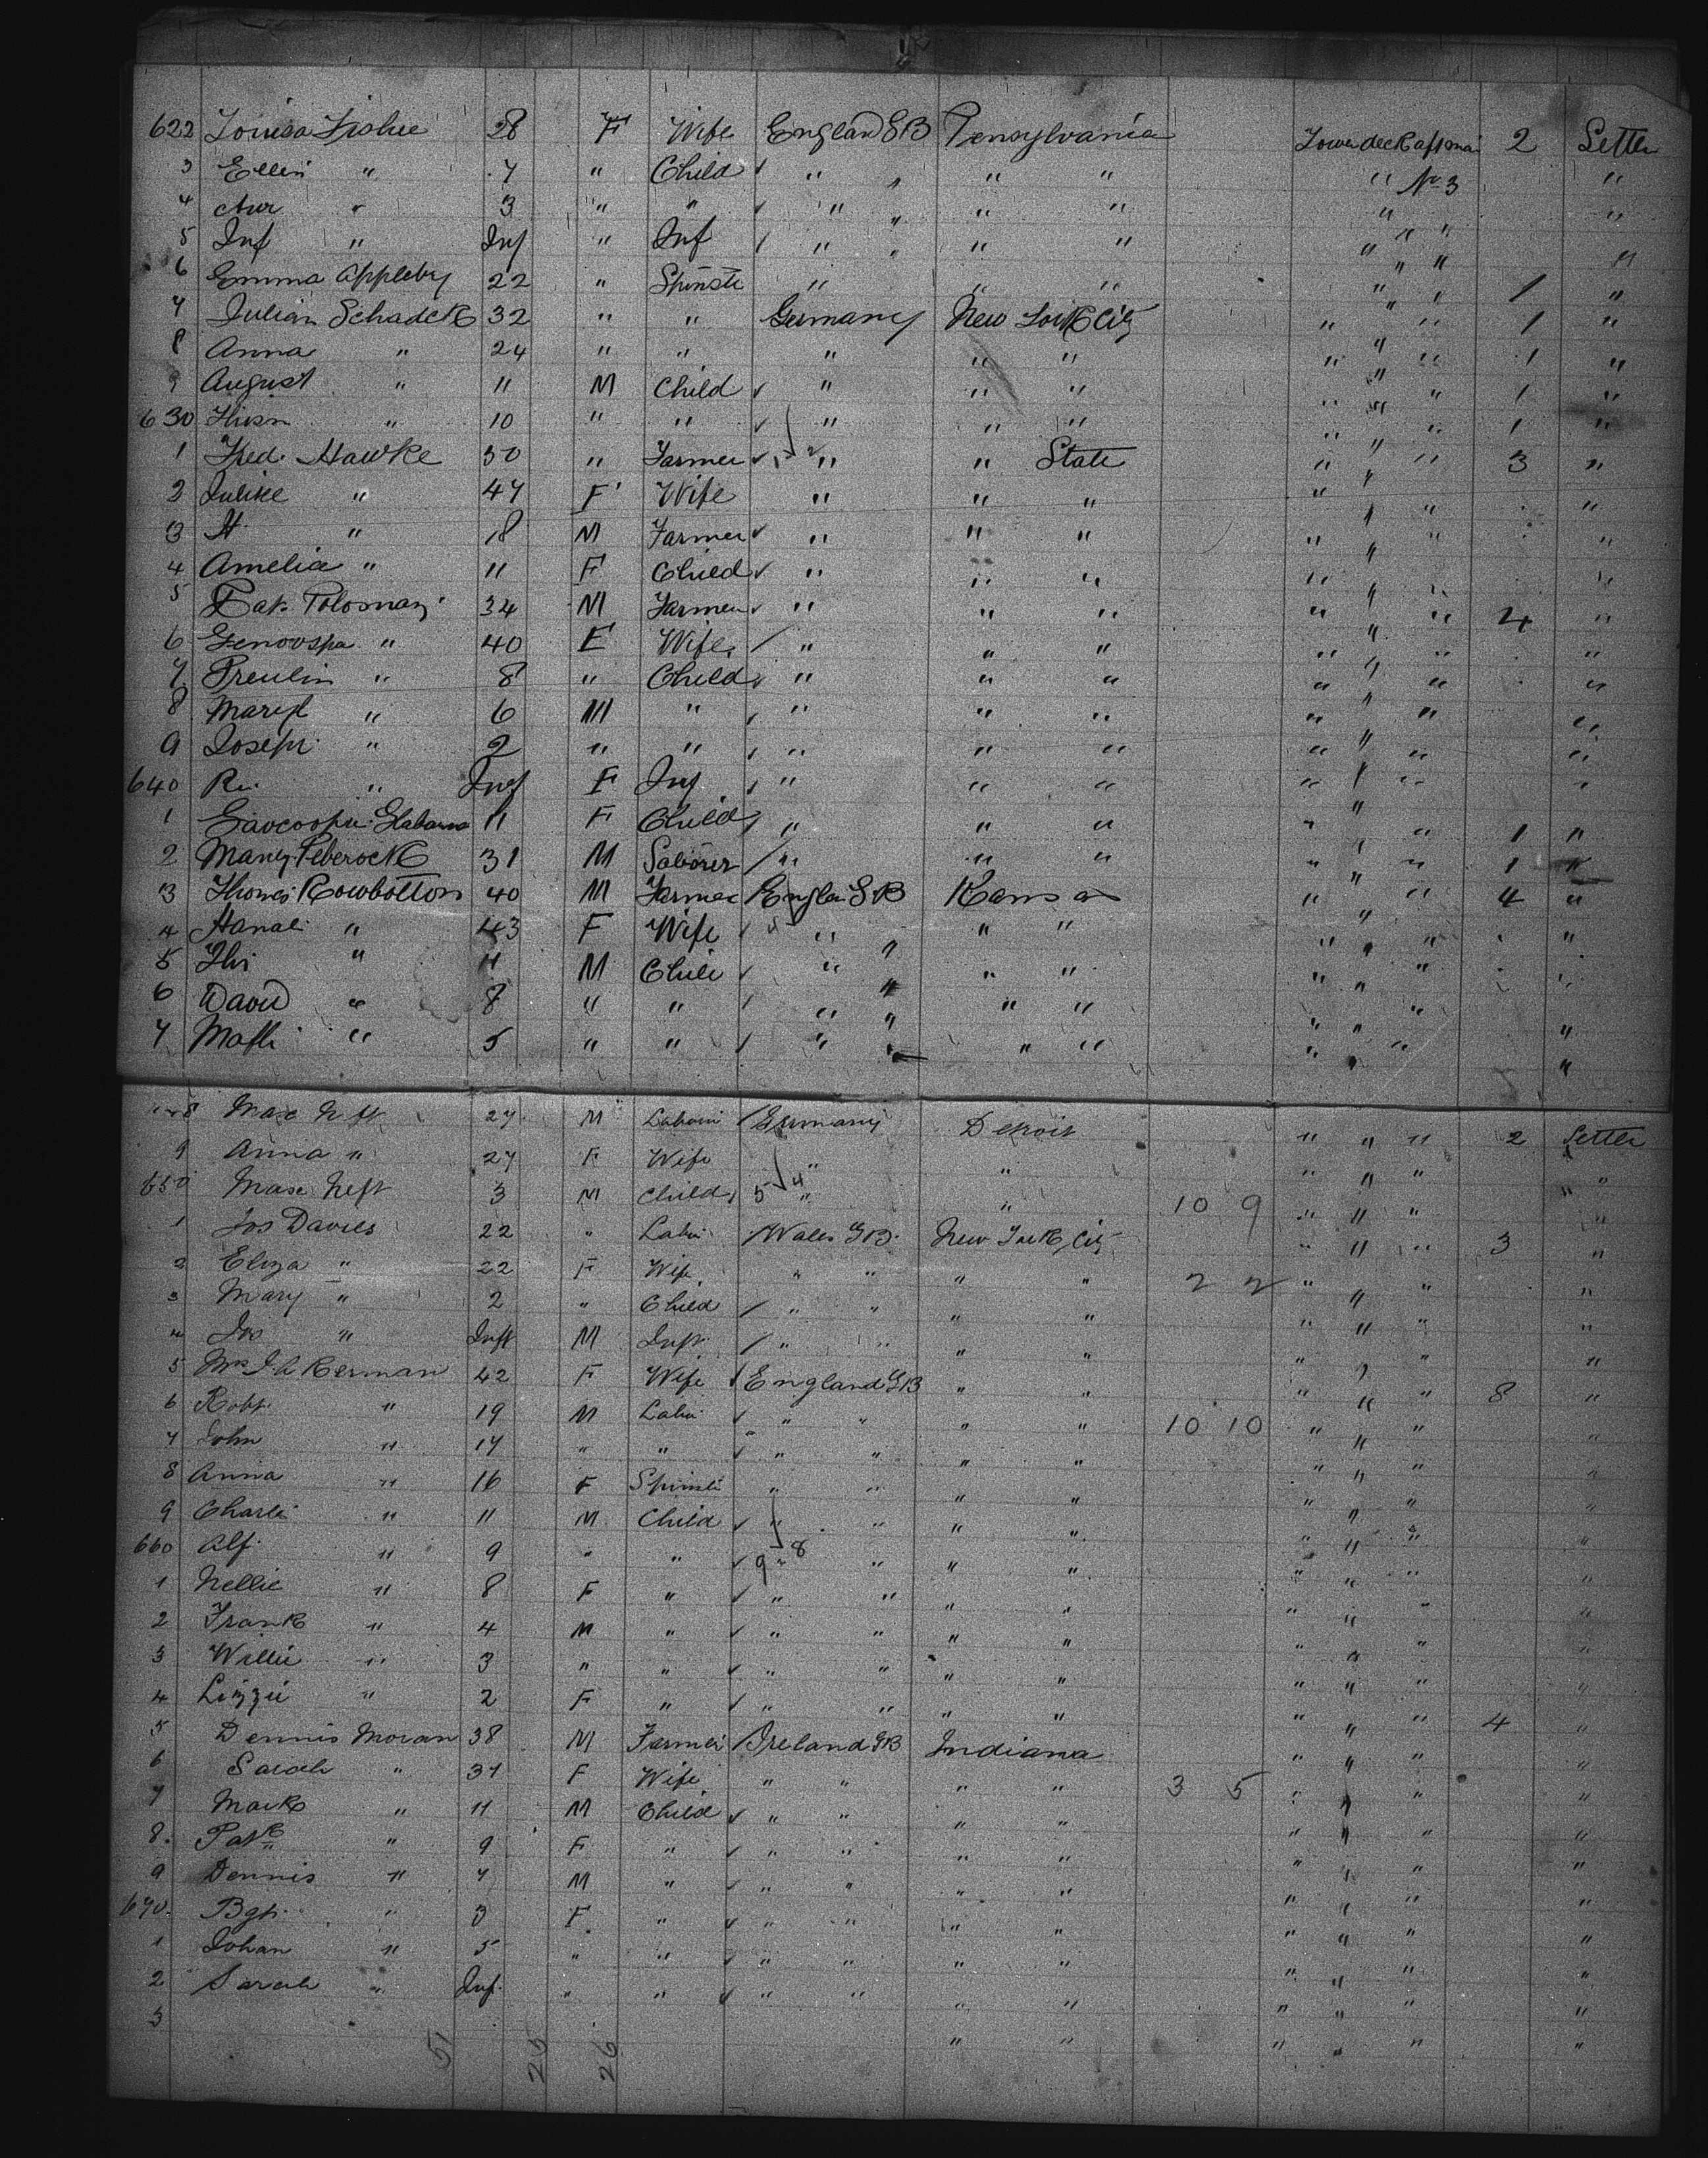 622 Louisa Fishue 28 F Wife England GB Pensylvania Lower deck aft main 2 Settler
3 Ellen " 7 " Child " " " " " No 3 "
4 " 3 " " " " " " " " " "
5 Inf " Inf " Inf " " " " " " " "
6 Emma Appleby 22 " Spinste " " " " " 1 "
7 Julian Schadek 32 " " Germany New York City " " " 1 "
8 Anna " 24 " " " " " " " " 1 "
9 August " 11 M Child " " " " " " 1 "
630 " 10 " " " " " " " " 1 "
1 Fred. Hawke 50 " Farmer " " State " " " 3 "
2 " 47 F Wife " " " " " " "
3 H " 18 M Farmer " " " " " " "
4 Amelia " 11 F Child " " " " " " "
5 34 M Farmer " " " " " " 4 "
6 " 40 F Wife " " " " " " "
7 " 8 " Child " " " " " " "
8 " 6 M " " " " " " " "
9 Joseph " 2 " " " " " " " " "
640 " Inf F Inf " " " " " " "
1 11 F Child " " " " " " 1 "
2 31 M Laborer " " " " " " 1 "
3 Thomas Rowbottom 40 M Farmer Englan GB Kansas " " " 4 "
4 " 43 F Wife " " " " " " " "
5 " 11 M Chile " " " " " " "
6 David " 8 " " " " " " " " "
7 " 5 " " " " " " " " " "
8 Max Neft 27 M Labour Germany Detroit " " " 2 Settler
9 Anna " 27 F Wife " " " " " "
650 Max Neft 3 M Child 5 4 " " 10 9 " " " "
1 Jos Davies 22 " Labr Wales GB New York City " " " 3 "
2 Eliza " 22 F Wife " " " " 2 2 " " " "
3 Mary " 2 " Child " " " " " " " "
4 Jos " Inft M Inft " " " " " " " "
5 Mrs 42 F Wife England GB " " " " " 8 "
6 Robt " 19 M Labr " " " " 10 10 " " " "
7 John " 17 " " " " " " " " " "
8 Anna " 16 F Spinste " " " " " " " "
9 Charli " 11 M Child " " " " " " " "
660 Alf. " 9 " " 9 8 " " " " " " "
1 Nellie " 8 F " " " " " " " " "
2 Frank " 4 M " " " " " " " " "
3 Willie " 3 " " " " " " " " " "
4 Lizzie " 2 F " " " " " " " " "
5 Dennis Moran 38 M Farmer Ireland GB Indiana " " " 4 "
6 Sarah " 37 F Wife " " " " 3 5 " " " "
7 Mark " 11 M Child " " " " " " " "
8 Patk " 9 F " " " " " " " " "
9 Dennis " 7 M " " " " " " " " "
670 Bgt. " 3 F " " " " " " " " "
1 Johan " 5 " " " " " " " " " "
2 Sarah " Inf. " " " " " " " " " "
3 " " " " " "
51 25 26